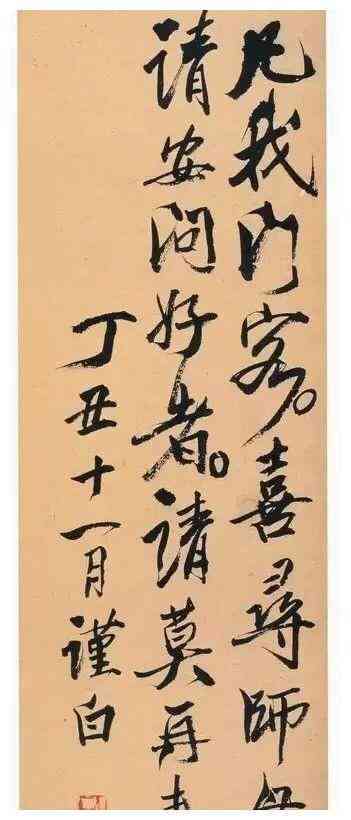 凡我门客。喜尋師
请安问好者。请莫再
丁丑十一月谨白